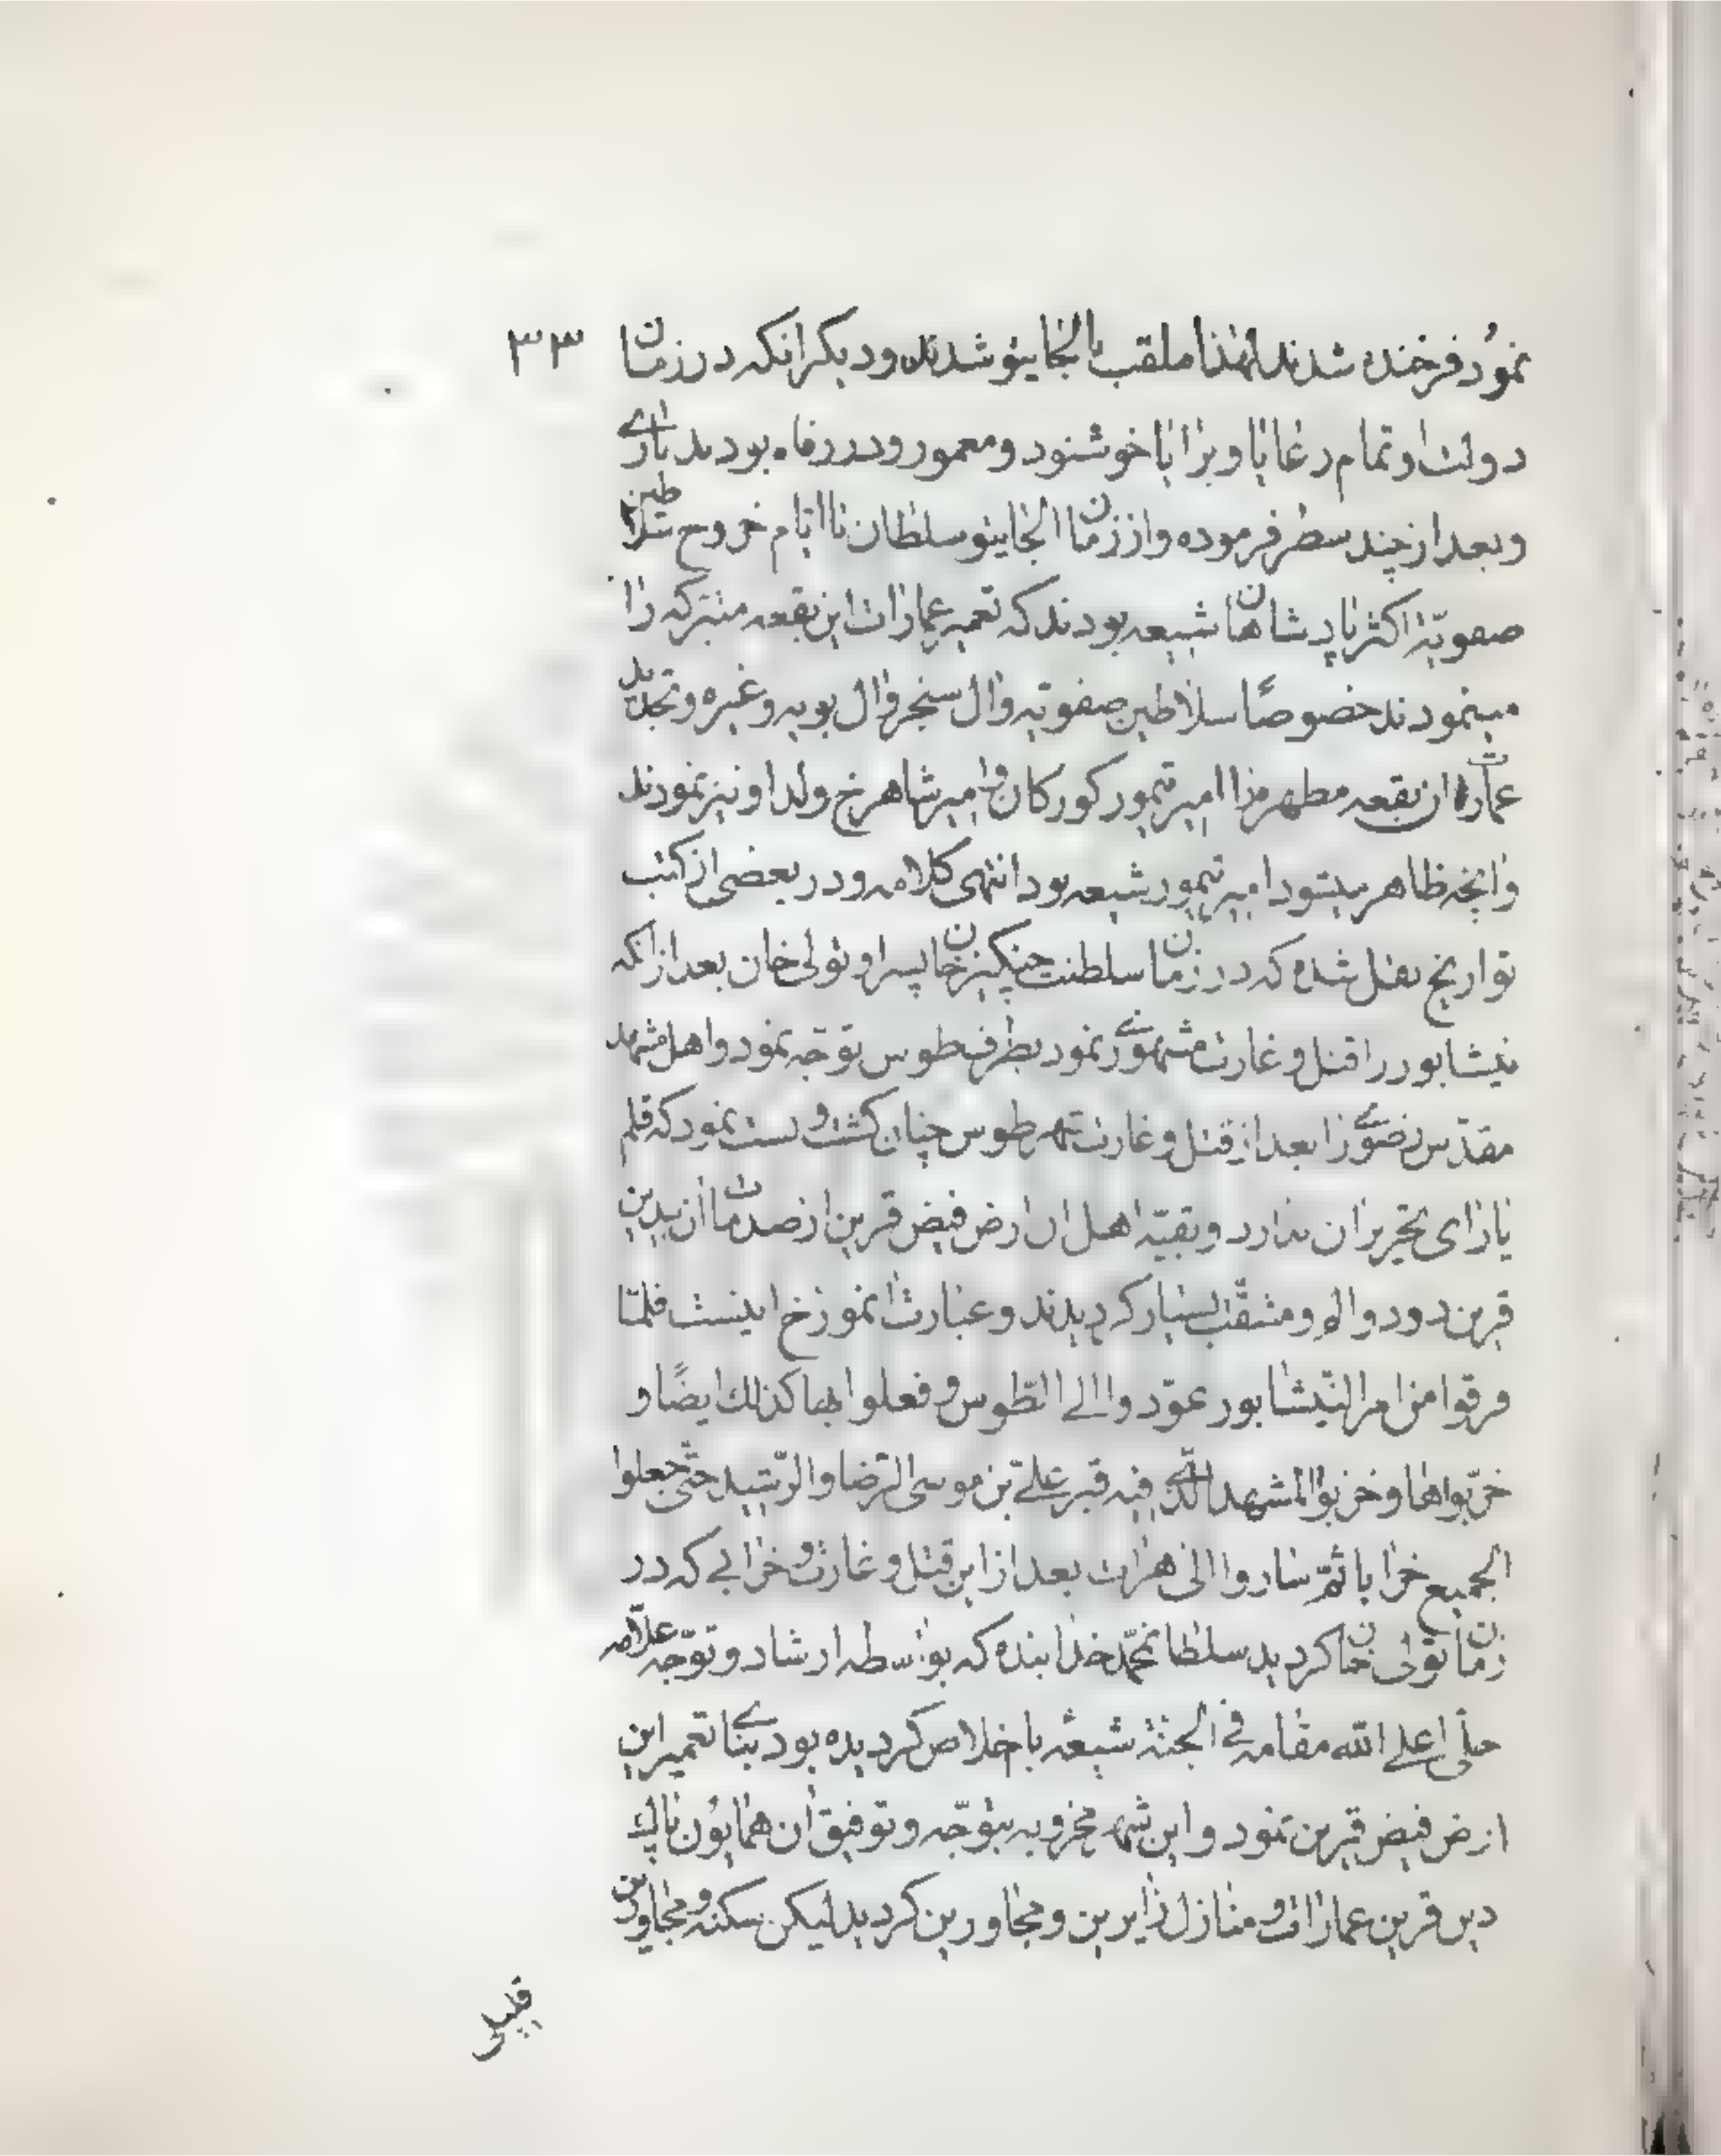 نمود فرخنده شدند لهذا ملقب بالجایتو شدند و دیکر انکه در زمان ۳۳
دولت او تمام رعایا و برایا خوشنود و معمور و در رفاه بودند باری
و بعد از چند سطر فرموده و از زمان الجایتو سلطان تا ایام خروج سلاطین
صفویّه اکثر پادشاهان شیعه بودند که تعمیر عمارات این بقعه متبرکه را
مینمودند خصوصًا سلاطین صفویه و ال سنجر و ال بویه و غیره و تجدید
عمارات ان بقعه مطهر مزا امیر تیمور کورکان و امیر شاهرخ ولد او نیز نمودند
وانچه ظاهر میشود امیر تیمور شیعه بود انتهی کلامه و در بعضی از کتب
تواریخ نقل شده که در زمان سلطنت چنکیز خان پسر او تولی خان بعد از انکه
نیشابور را قتل و غارت مشهوری نمود بطرف طوس توجه نمود و اهل مشهد
مقدّس رضوی را بعد از قتل و غارت شهر طوس چنان کشت و بست نمود که قلم
یارای تحریر ان ندارد و بقیّه اهل ان ارض فیض قرین از صدمات ان بیدین
قرین درد و الم و مشقّت بسیار کردیدند و عبارت انمورخ اینست فلمّا
فرقوا من امر النّیشابور عوّدوا الی الطّوس و فعلوا بها کذلك ایضًا و
خرّبواها و خربوا المشهد الّذی فیه قبر علی بن موسی الرّضا و الرّشید حتّی جعلوا
الجمیع خرابا ثمّ ساروا الی هرات بعد از این قتل و غارت و خرابی که در
زمان تولی خان کردید سلطان محمّد خدابنده که بواسطه ارشاد و توجّه علّامه
حلّی اعلی اللّه مقامه فی الجنّة شیعه با اخلاص کردیده بود بنای تعمیر این
ارض فیض قرین نمود و این شهر مخروبه بتوجّه و توفیق ان همایون پاك
دین قرین عمارات و منازل زایرین و مجاورین کردید لیکن سکنه و مجاورین